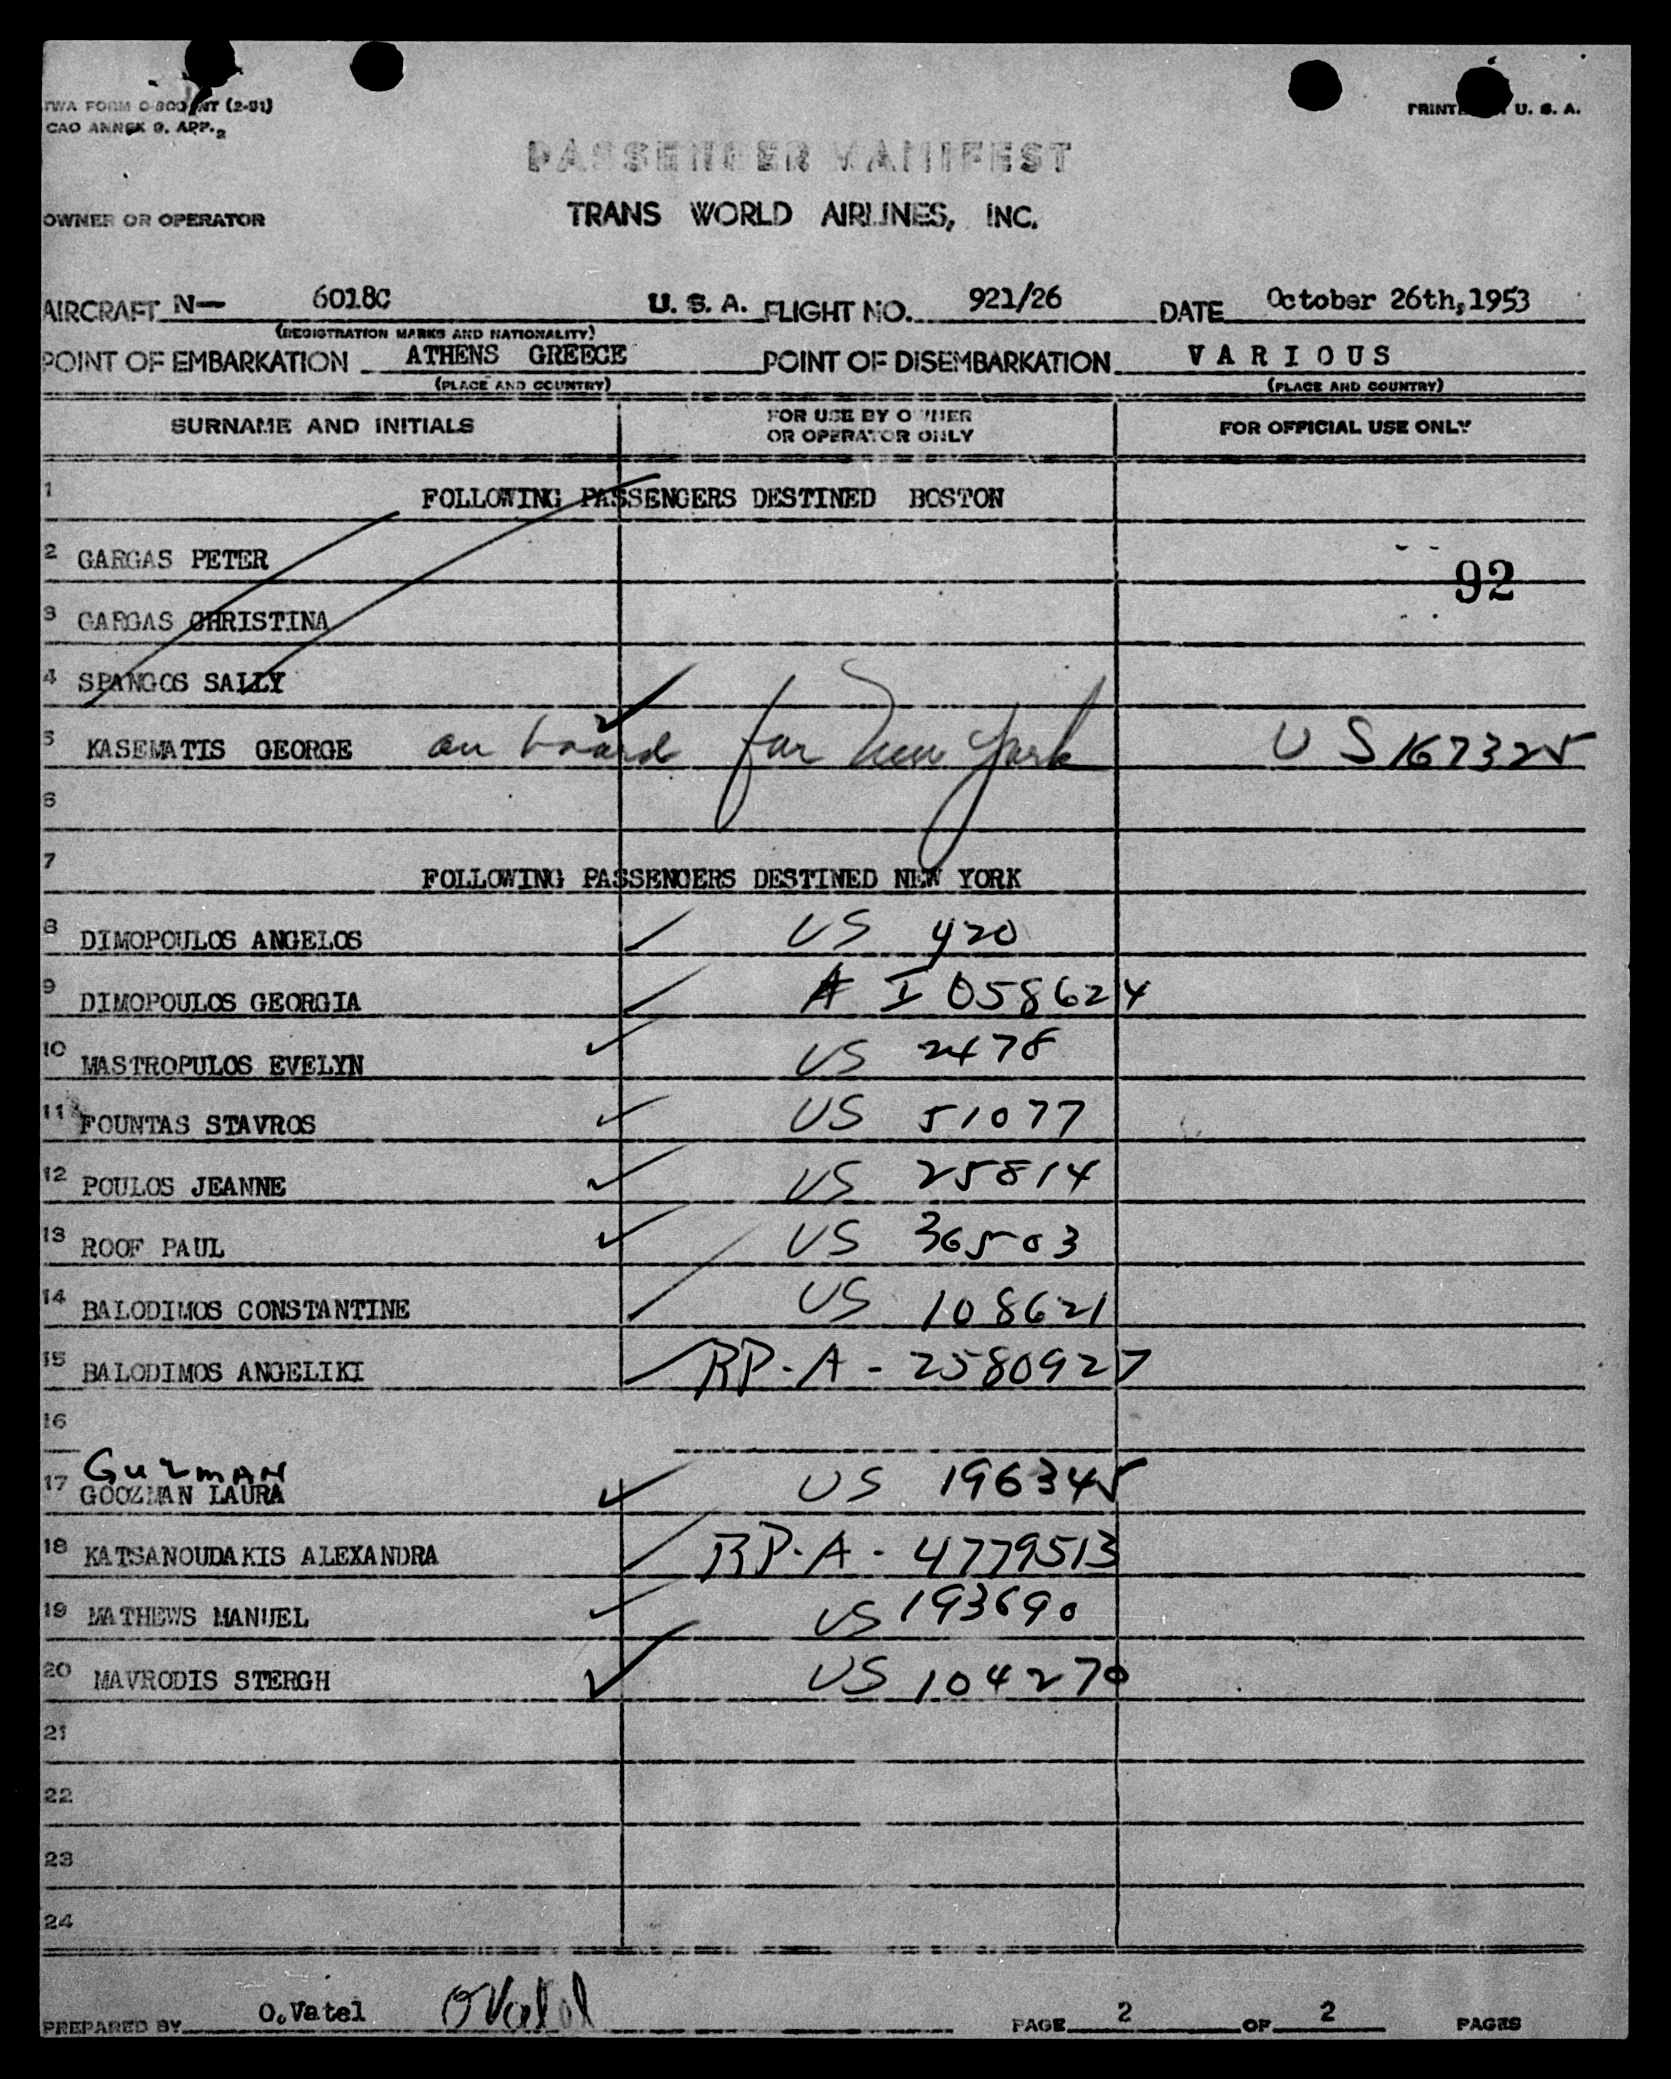 TWA FORM O-800 INT (2-51)
ICAO ANNEX 9, APP. 2
PRINTED IN U. S. A.
PASSENGER MANIFEST
OWNER OR OPERATOR TRANS WORLD AIRLINES, INC.
AIRCRAFT N— 6018C U. S. A. FLIGHT NO. 921/26 DATE October 26th,1953
(REGISTRATION MARKS AND NATIONALITY)
POINT OF EMBARKATION ATHENS GREECE POINT OF DISEMBARKATION VARIOUS
(PLACE AND COUNTRY) (PLACE AND COUNTRY)
SURNAME AND INITIALS FOR USE BY OWNER OR OPERATOR ONLY FOR OFFICIAL USE ONLY
1 FOLLOWING PASSENGERS DESTINED BOSTON
2 GARGAS PETER
92
3 GARGAS CHRISTINA
4 SPANGOS SALLY
5 KASEMATIS GEORGE on board for New York US 167325
6
7 FOLLOWING PASSENGERS DESTINED NEW YORK
8 DIMOPOULOS ANGELOS US 420
9 DIMOPOULOS GEORGIA A I 058624
10 MASTROPULOS EVELYN US 2478
11 FOUNTAS STAVROS US 51077
12 POULOS JEANNE US 25814
13 ROOF PAUL US 36503
14 BALODIMOS CONSTANTINE US 108621
15 BALODIMOS ANGELIKI RP-A-2580927
16
GUZMAN
17 GOOZMAN LAURA US 196345
18 KATSANOUDAKIS ALEXANDRA RP-A-4779513
19 MATHEWS MANUEL US 193690
20 MAVRODIS STERGH US 104270
21
22
23
24
PREPARED BY O.Vatel OVatel PAGE 2 OF 2 PAGES